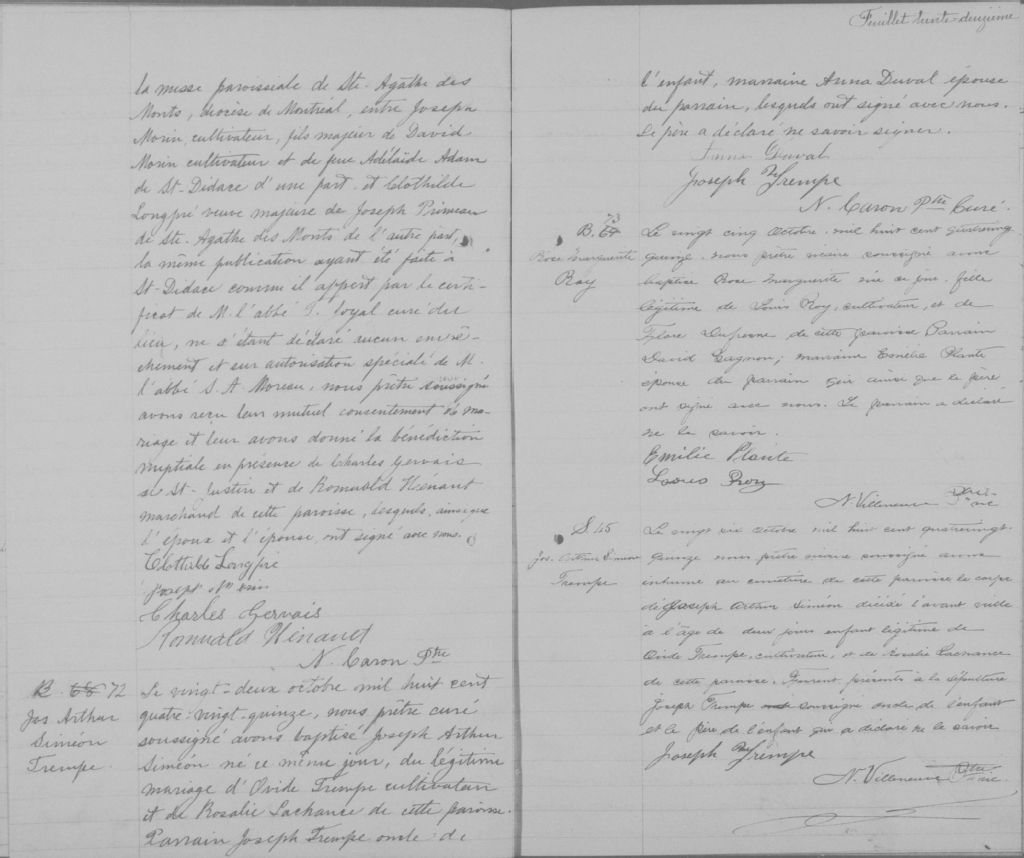 la messe paroissiale de Ste-Agathe des
Monts, diocèse de Montréal, entre Joseph
Morin, cultivateur, fils majeur de David
Morin cultivateur et de feue Adélaïde Adam
de St-Didace d'une part et Clothilde
Longpré veuve majeure de Joseph Primeau
de Ste. Agathe des Monts de l'autre part,
la même publication ayant été faite à
St-Didace comme il appert par le certi-
ficat de M. l'abbé J. Loyal curé du
lieu, ne s'étant déclaré aucun empê-
chement et sur autorisation spéciale de M.
l'abbé S. A. Moreau, nous prêtre soussigné
avons reçu leur mutuel consentement de ma-
riage et leur avons donné la bénédiction
nuptiale en présence de Charles Gervais
de St-Justin et de Romuald Hénaut
marchand de cette paroisse, lesquels, ainsi que
l'époux et l'épouse, ont signé avec nous.
Clothilde Longpré
Joseph Morin
Charles Gervais
Romuald Hénault
N. Caron Ptre
B. 68 72
Jos Arthur
Siméon
Trempe.
Le vingt-deux octobre mil huit cent
quatre-vingt-quinze, nous prêtre curé
soussigné avons baptisé Joseph Arthur
Siméon né ce même jour, du légitime
mariage d'Ovide Trempe cultivateur
et de Rosalie Lachance de cette paroisse.
Parrain Joseph Trempe oncle de
Feuillet trente-deuxième
l'enfant, marraine Anna Duval épouse
du parrain, lesquels ont signé avec nous.
Le père a déclaré ne savoir signer.
Anna Duval
Joseph Trempe
N. Caron Ptre Curé.
73
B. 69
Rose Marguerite
Roy
Le vingt cinq Octobre mil huit cent quatrevingt
quinze nous prêtre vicaire soussigné avons
baptisé Rose Marguerite née ce jour fille
légitime de Louis Roy, cultivateur, et de
Flore de cette paroisse Parrain
David Gagnon; marraine Emélie Plante
épouse du parrain qui ainsi que le père
ont signé avec nous. Le parrain a déclaré
ne le savoir.
Emilie Plante
Louis Roy
N. Villeneuve Ptre
vic
S 45
Jos. Arthur Siméon
Trempe
Le vingt six octobre mil huit cent quatrevingt
quinze nous prêtre vicaire soussigné avons
inhumé au cimetière de cette paroisse le corps
de Joseph Arthur Siméon décédé l'avant veille
à l'âge de deux jours enfant légitime de
Ovide Trempe, cultivateur, et de Rosalie Lachance
de cette paroisse. Furent présents à la sépulture
Joseph Trempe soussigné oncle de l'enfant
et le père de l'enfant qui a déclaré ne le savoir
Joseph Trempe
N. Villeneuve Ptre
vic